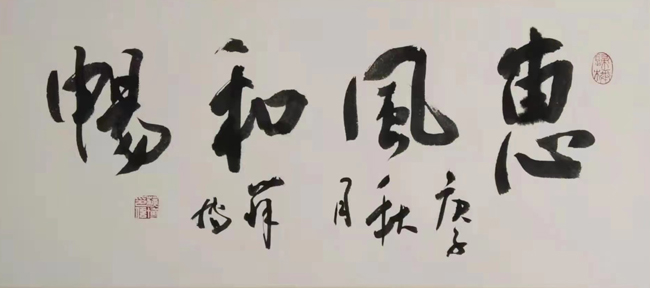 惠風和暢
庚子秋月